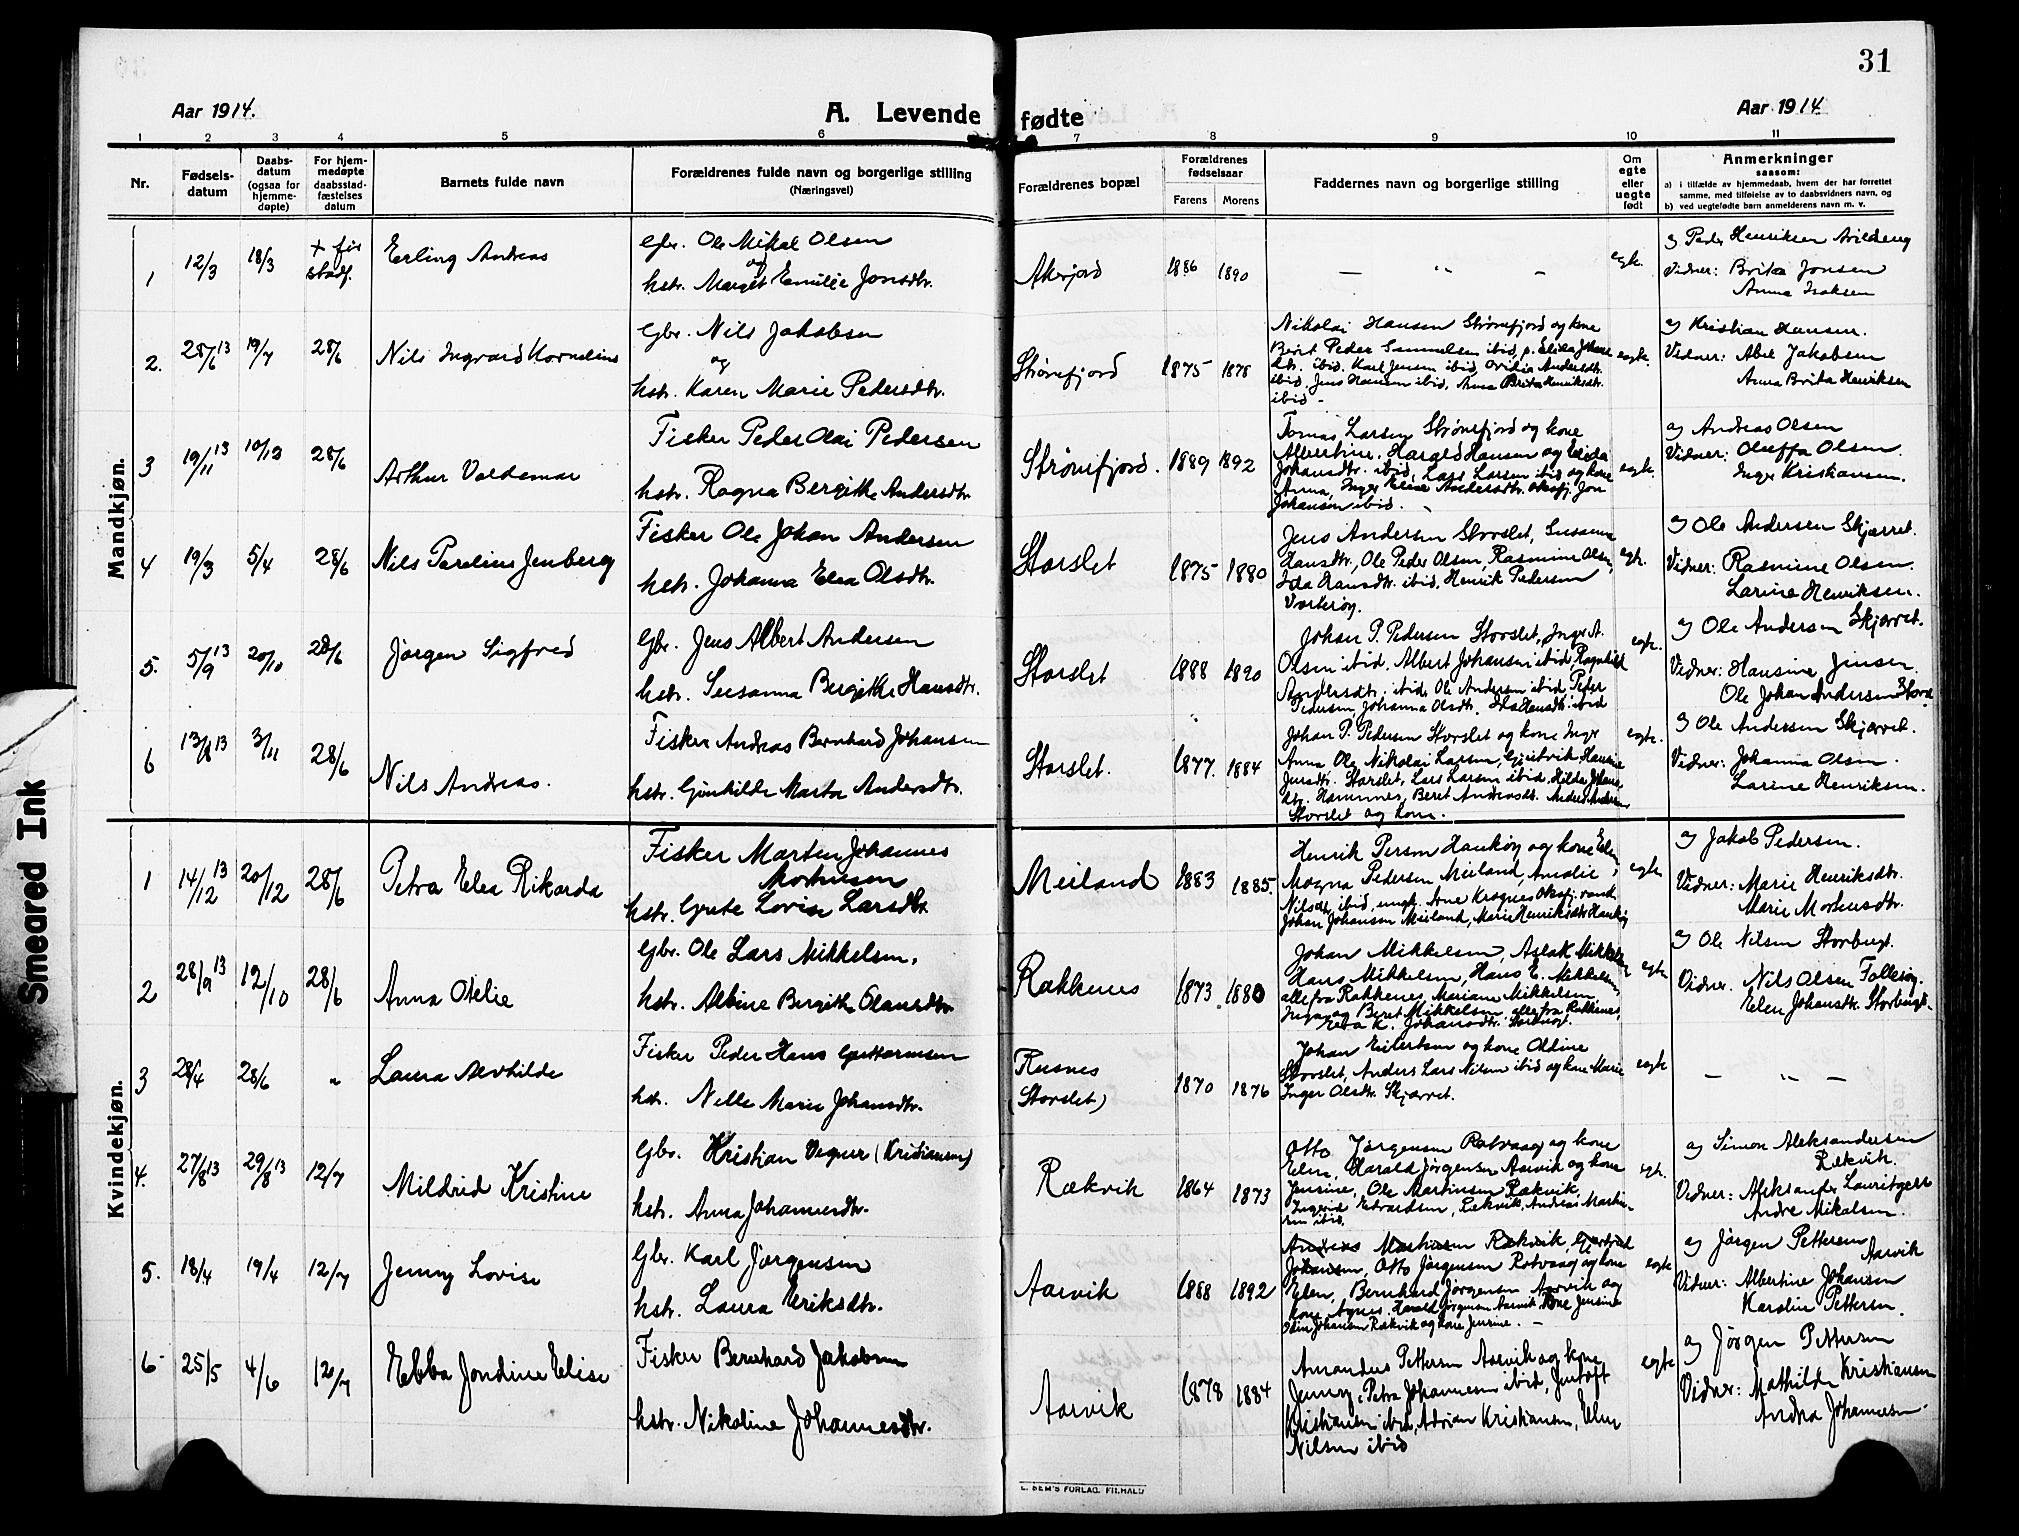 31
Aar 1914.
A. Levende fødte
Aar 1914
1 2 3 4 5 6 7 8 9 10 11
Nr.
Fødsels-
datum
Daabs-
datum
(ogsaa for
hjemme-
døpte)
For hjem-
medøpte
daabsstad-
fæstelses
datum
Barnets fulde navn
Forældrenes fulde navn og borgerlige stilling
(Næringsvei)
Forældrenes bopæl
Forældrenes
fødselsaar
Farens Morens
Faddernes navn og borgerlige stilling
Om
egte
eller
uegte
født
Anmerkninger
saasom:
a) i tilfælde av hjemmedaab, hvem der har forrettet
samme, med tilføielse av to daabsvidners navn, og
b) ved uegtefødte barn anmelderens navn m. v.
Mandkjøn.
1 12/3 18/3 + før stadf. Erling Andreas
Gbr. Ole Mikal Olsen
og
hstr. Margit Emilie Jonsdtr.
1886 1890 — " — egte.
a) Peder Henriksen
Vidner: Brita Jonsen
Anna Isaksen
2. 28/6 13 19/7 28/6 Nils Ingvard Kornelius
Gbr. Nils Jakobsen
og
hstr. Karen Marie Pedersdtr.
Strømfjord 1875 1878
Nikolai Hansen Strømfjord og kone
Beret Peder Samuelsen ibid,
dtr. ibid. Karl Jensen ibid, Ovidia Andersdtr.
ibid. Jens Hansen ibid, Anna Brita Henriksdtr.
ibid -
egte.
a) Kristian Hansen.
Vidner: Abel Jakobsen
Anna Brita Henriksen
3 19/11 13 10/12 28/6 Arthur Valdemar
Fisker Peder Olai Pedersen
hstr. Ragna Bergithe Andersdtr.
Strømfjord. 1889 1892
Tomas Larsen Strømfjord og kone
Albertine. Harald Hansen og Elida
Johansdtr. ibid, Lars Larsen ibid og kone
Anna, Inger Elise Andersdtr. Jon
Johansen ibid.
egte.
a) Andreas Olsen
Vidner: Oluffa Olsen
Inger Kristiansen.
4 19/3 5/4 28/6 Nils Parelius Jenberg
Fisker Ole Johan Andersen
hstr. Johanna Elea Olsdtr.
Storslet 1875 1880
Jens Andersen Storslet, Susanna
Hansdtr, Ole Peder Olsen, Rasmine Olsen,
Ida Hansdtr. ibid, Henrik Pedersen
Vorterøy.
egte.
a) Ole Andersen Skjærret.
Vidner: Rasmine Olsen.
Larine Henriksen.
5. 5/9 13 20/10 28/6 Jørgen Sigfred
Gbr. Jens Albert Andersen
hstr. Susanna Bergithe Hansdtr.
Storslet 1888 1890
Johan P. Pedersen Storslet, Inger A.
Olsen ibid, Albert Johansen ibid, Ragnhild
Andersdtr. ibid, Ole Andersen ibid, Peder
Pedersen, Johanna Olsdtr. Ida Hansdtr. ibid
egte.
a) Ole Andersen Skjærret.
Vidner: Hansine Jensen
Ole Johan Andersen
6 13/8 13 3/11 28/6 Nils Andreas.
Fisker Andreas Bernhard Johansen
hstr. Gunhilde Marta Andersdtr.
Storslet. 1877. 1884
Johan P. Pedersen Storslet og kone Inger
Anna, Ole Nikolai Larsen, Hansine
Jensdtr. Storslet, Lars Larsen ibid, Hilda
dtr. Hamnnes, Beret Andreasdtr.
Storslet og kone.
egte.
a) Ole Andersen Skjærret.
Vidner: Johanna Olsen.
Larine Henriksen.
Kvindekjøn.
1 14/12 13 20/12 28/6 Petra Elea Rikarda
Fisker Morten Johannes
Mortensen
hstr. Grete Lovise Larsdtr.
Meiland 1883 1885.
Henrik Person Haukøy og kone Elen,
Magna Pedersen Meiland, Amalie
Nilsdtr. ibid, ungk. Arne Kragnes
Johan Johansen Meiland, Marie Henriksdtr Haukøy
egte
a) Jakob Pedersen.
Vidner: Marie Henriksdtr.
Marie Mortensdtr.
2 28/9 13 12/10 28/6 Anna Otelie
Gbr. Ole Lars Mikkelsen,
hstr. Albine Bergithe Olausdtr.
Rakkenes 1873 1880
Johan Mikkelsen, Aslak Mikkelsen
Hans Mikkelsen, Hans E. Mikkelsen,
alle fra Rakkenes, Mariane Mikkelsen
Inga og Beret Mikkelsen, alle fra Rakkenes,
Elea K. Johansdtr.
egte
a) Ole Nilsen Storbugt.
Vidner. Nils Olsen Follesøy.
Elen Johansdtr. Storbugt.
3 28/4 28/6 " Laura Alvhilde
Fisker Peder Hans Guttormsen
hstr. Nelle Marie Johansdtr.
(Storslet) 1870 1876
Johan Eilertsen og kone Oldine
Storslet, Anders Lars Nilsen ibid og kone Marie
Inger Olsdtr. Skjærret.
egte — " —
4. 27/8 13 29/8 13 12/7 Mildrid Kristine
Gbr. Kristian Vegner (Kristiansen)
hstr. Anna Johannesdtr.
Rækvik 1864 1873
Otto Jørgensen Rotvaag og kone
Elen, Harald Jørgensen Aarvik og kone
Jensine, Ole Martinsen Rækvik,
Ingerid Edvardsen, Rækvik, Andreas Martin-
sen ibid.
egte.
a) Simon Aleksandersen
Rækvik.
Vidner: Aleksander Lauritzen
Andre Mikalsen.
5. 18/4 19/4 12/7 Jenny Lovise
Gbr. Karl Jørgensen
hstr. Laura Eriksdtr.
Aarvik 1888 1892
Andreas Martinsen Rækvik, Gjertrud
Johansen, Otto Jørgensen Rotvaag og kone
Elen, Bernhard Jørgensen Aarvik og
kone Agnes. Harald Jørgensen Aarvik kone Jensine
Johansen Rækvik og kone Jensine. -
egte
a) Jørgen Pettersen
Aarvik
Vidner: Albertine Johansen
Karoline Pettersen.
6 25/5 4/6 12/7 Ebba Jondine Elise
Fisker Bernhard Jakobsen
hstr. Nikoline Johannesdtr.
Aarvik 1878 1884
Amandus Pettersen Aarvik og kone
Jenny, Petra Johannesen ibid, Jentoft
Kristiansen ibid, Adrian Kristiansen, Elen
Nilsen ibid
egte
a) Jørgen Pettersen
Vidner: Mathilde Kristiansen
Andrea Johannesen
E. SEM'S FORLAG. FR.HALD
Smeared Ink